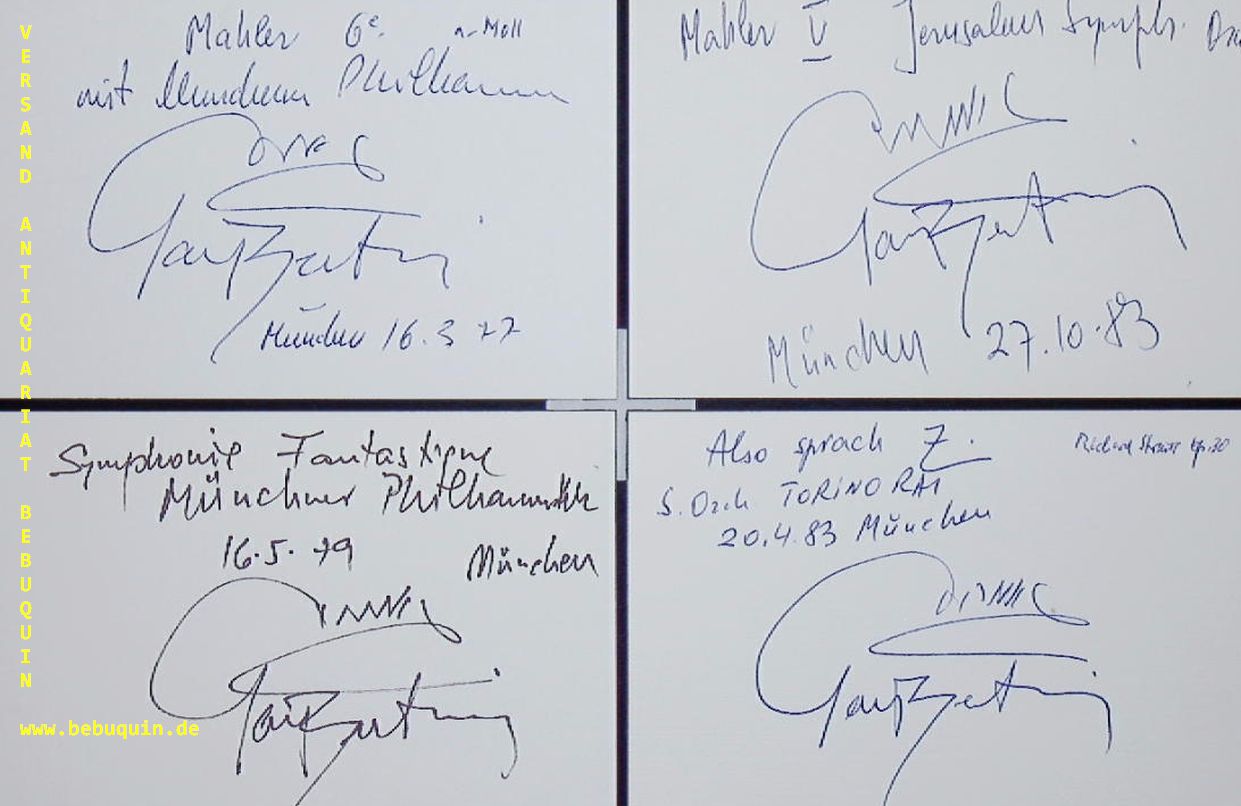 VERSAND ANTIQUARIAT BEBUQUIN
www.bebuquin.de
Mahler 6e. a-Moll
mit Münchner Philharm
Gary Bertini
München 16.3 77
Mahler V Jerusalem Symph.
Gary Bertini
München 27.10.83
Symphonie Fantastique
Münchner Philharmonik
16.5.79 München
Gary Bertini
Also sprach Z. Richard Strauss Op.30
S. Orch TORINO RAI
20.4.83 München
Gary Bertini